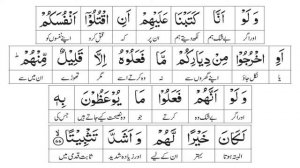 وَ لَوْ اَنَّا كَتَبْنَا عَلَيْهِمْ اَنِ اقْتُلُوْۤا اَنْفُسَكُمْ
اور اگر بے شک ہم لکھ دیتے ہم ان پر کہ قتل کرو اپنے نفسوں کو
اَوِ اخْرُجُوْا مِنْ دِيَارِكُمْ مَّا فَعَلُوْهُ اِلَّا قَلِيْلٌ مِّنْهُمْ ؕ
یا نکل جاؤ اپنے گھروں سے نہ وہ کرتے اسے مگر تھوڑے ان میں سے
وَ لَوْ اَنَّهُمْ فَعَلُوْا مَا يُوْعَظُوْنَ بِهٖ
اور اگر بے شک وہ وہ کرتے جو وہ نصیحت کیے جاتے ہیں جس کی
لَكَانَ خَيْرًا لَّهُمْ وَ اَشَدَّ تَثْبِيْتًا
البتہ ہوتا بہتر ان کے لیے اور زیادہ شدید ثابت قدمی میں